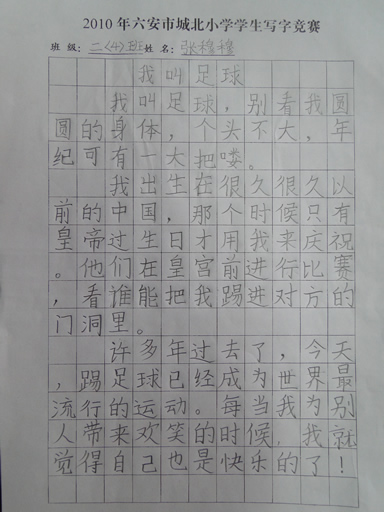 2010年六安市城北小学学生写字竞赛
班 级：二〈4〉班 姓 名：张穆穆
我叫足球
我叫足球，别看我圆
圆的身体，个头不大，年
纪可有一大把喽。
我出生在很久很久以
前的中国，那个时候只有
皇帝过生日才用我来庆祝
。他们在皇宫前进行比赛
，看谁能把我踢进对方的
门洞里。
许多年过去了，今天
，踢足球已经成为世界最
流行的运动。每当我为别
人带来欢笑的时候，我就
觉得自己也是快乐的了！